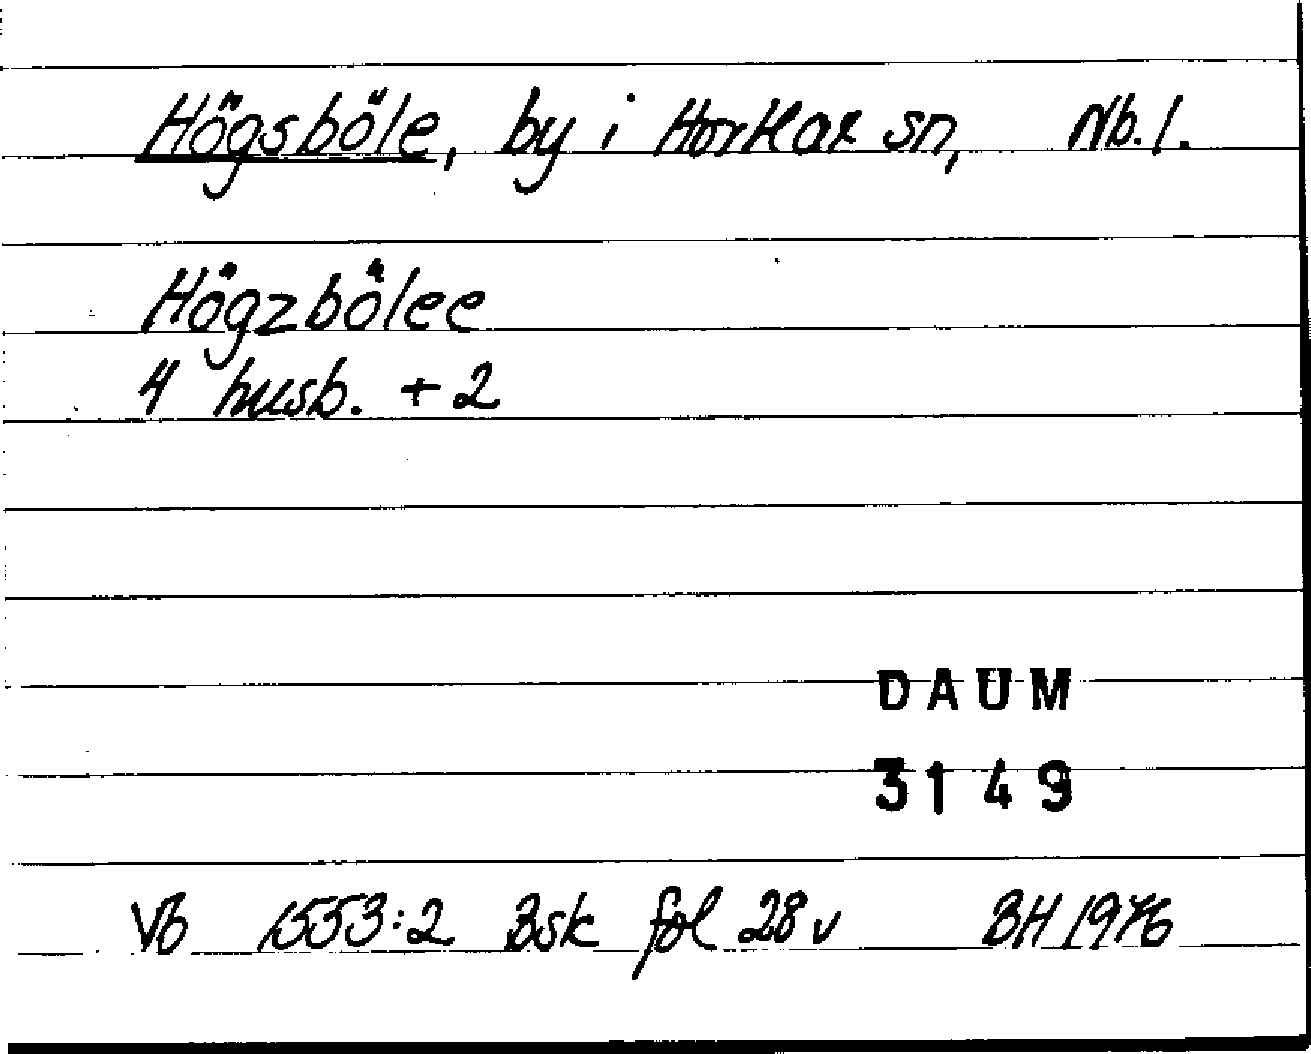 Högsböle, by i Hortlax sn, Nb. l.
Högzbölee
4 husb. + 2
DAUM
3149
Vb 1553:2 Bsk fol 28 v BH 1976